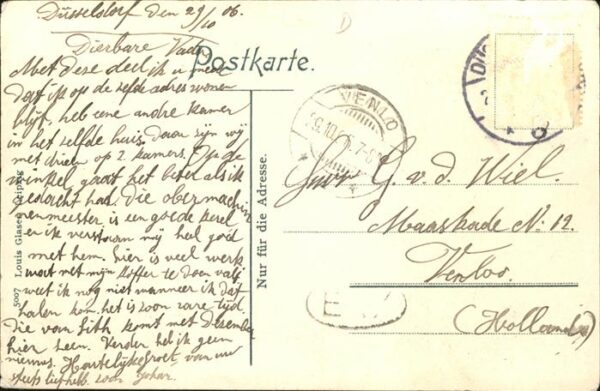 Düsseldorf den 29/10 06.
Dierbare Vader
Met deze deel ik u mede
dat ik op de zelfde adres wonen
blijf, heb eene andre kamer
in het zelfde huis. Daar zijn wij
met drieën op 2 kamers. Op de
winkel gaat het beter als ik
gedacht had. Die obermachin
enmeester is een goede kerel
en ik verstaan mij heel goed
met hem. hier is veel werk
wat met mijn koffer te doen valt
weet ik nog niet wanneer ik dat
halen kom. het is zoon rare tijd.
Die van komt met Dezember
hier heen. Verder heb ik geen
nieuws. Hartelijke Groet van uw
liefhebb. zoon Johan.
Postkarte.
Nur für die Adresse.
5007 Louis Glaser, Leipzig
VENLO
29.10.
G. v. d. Wiel.
Maaskade No. 12.
Venloo.
(Holland)